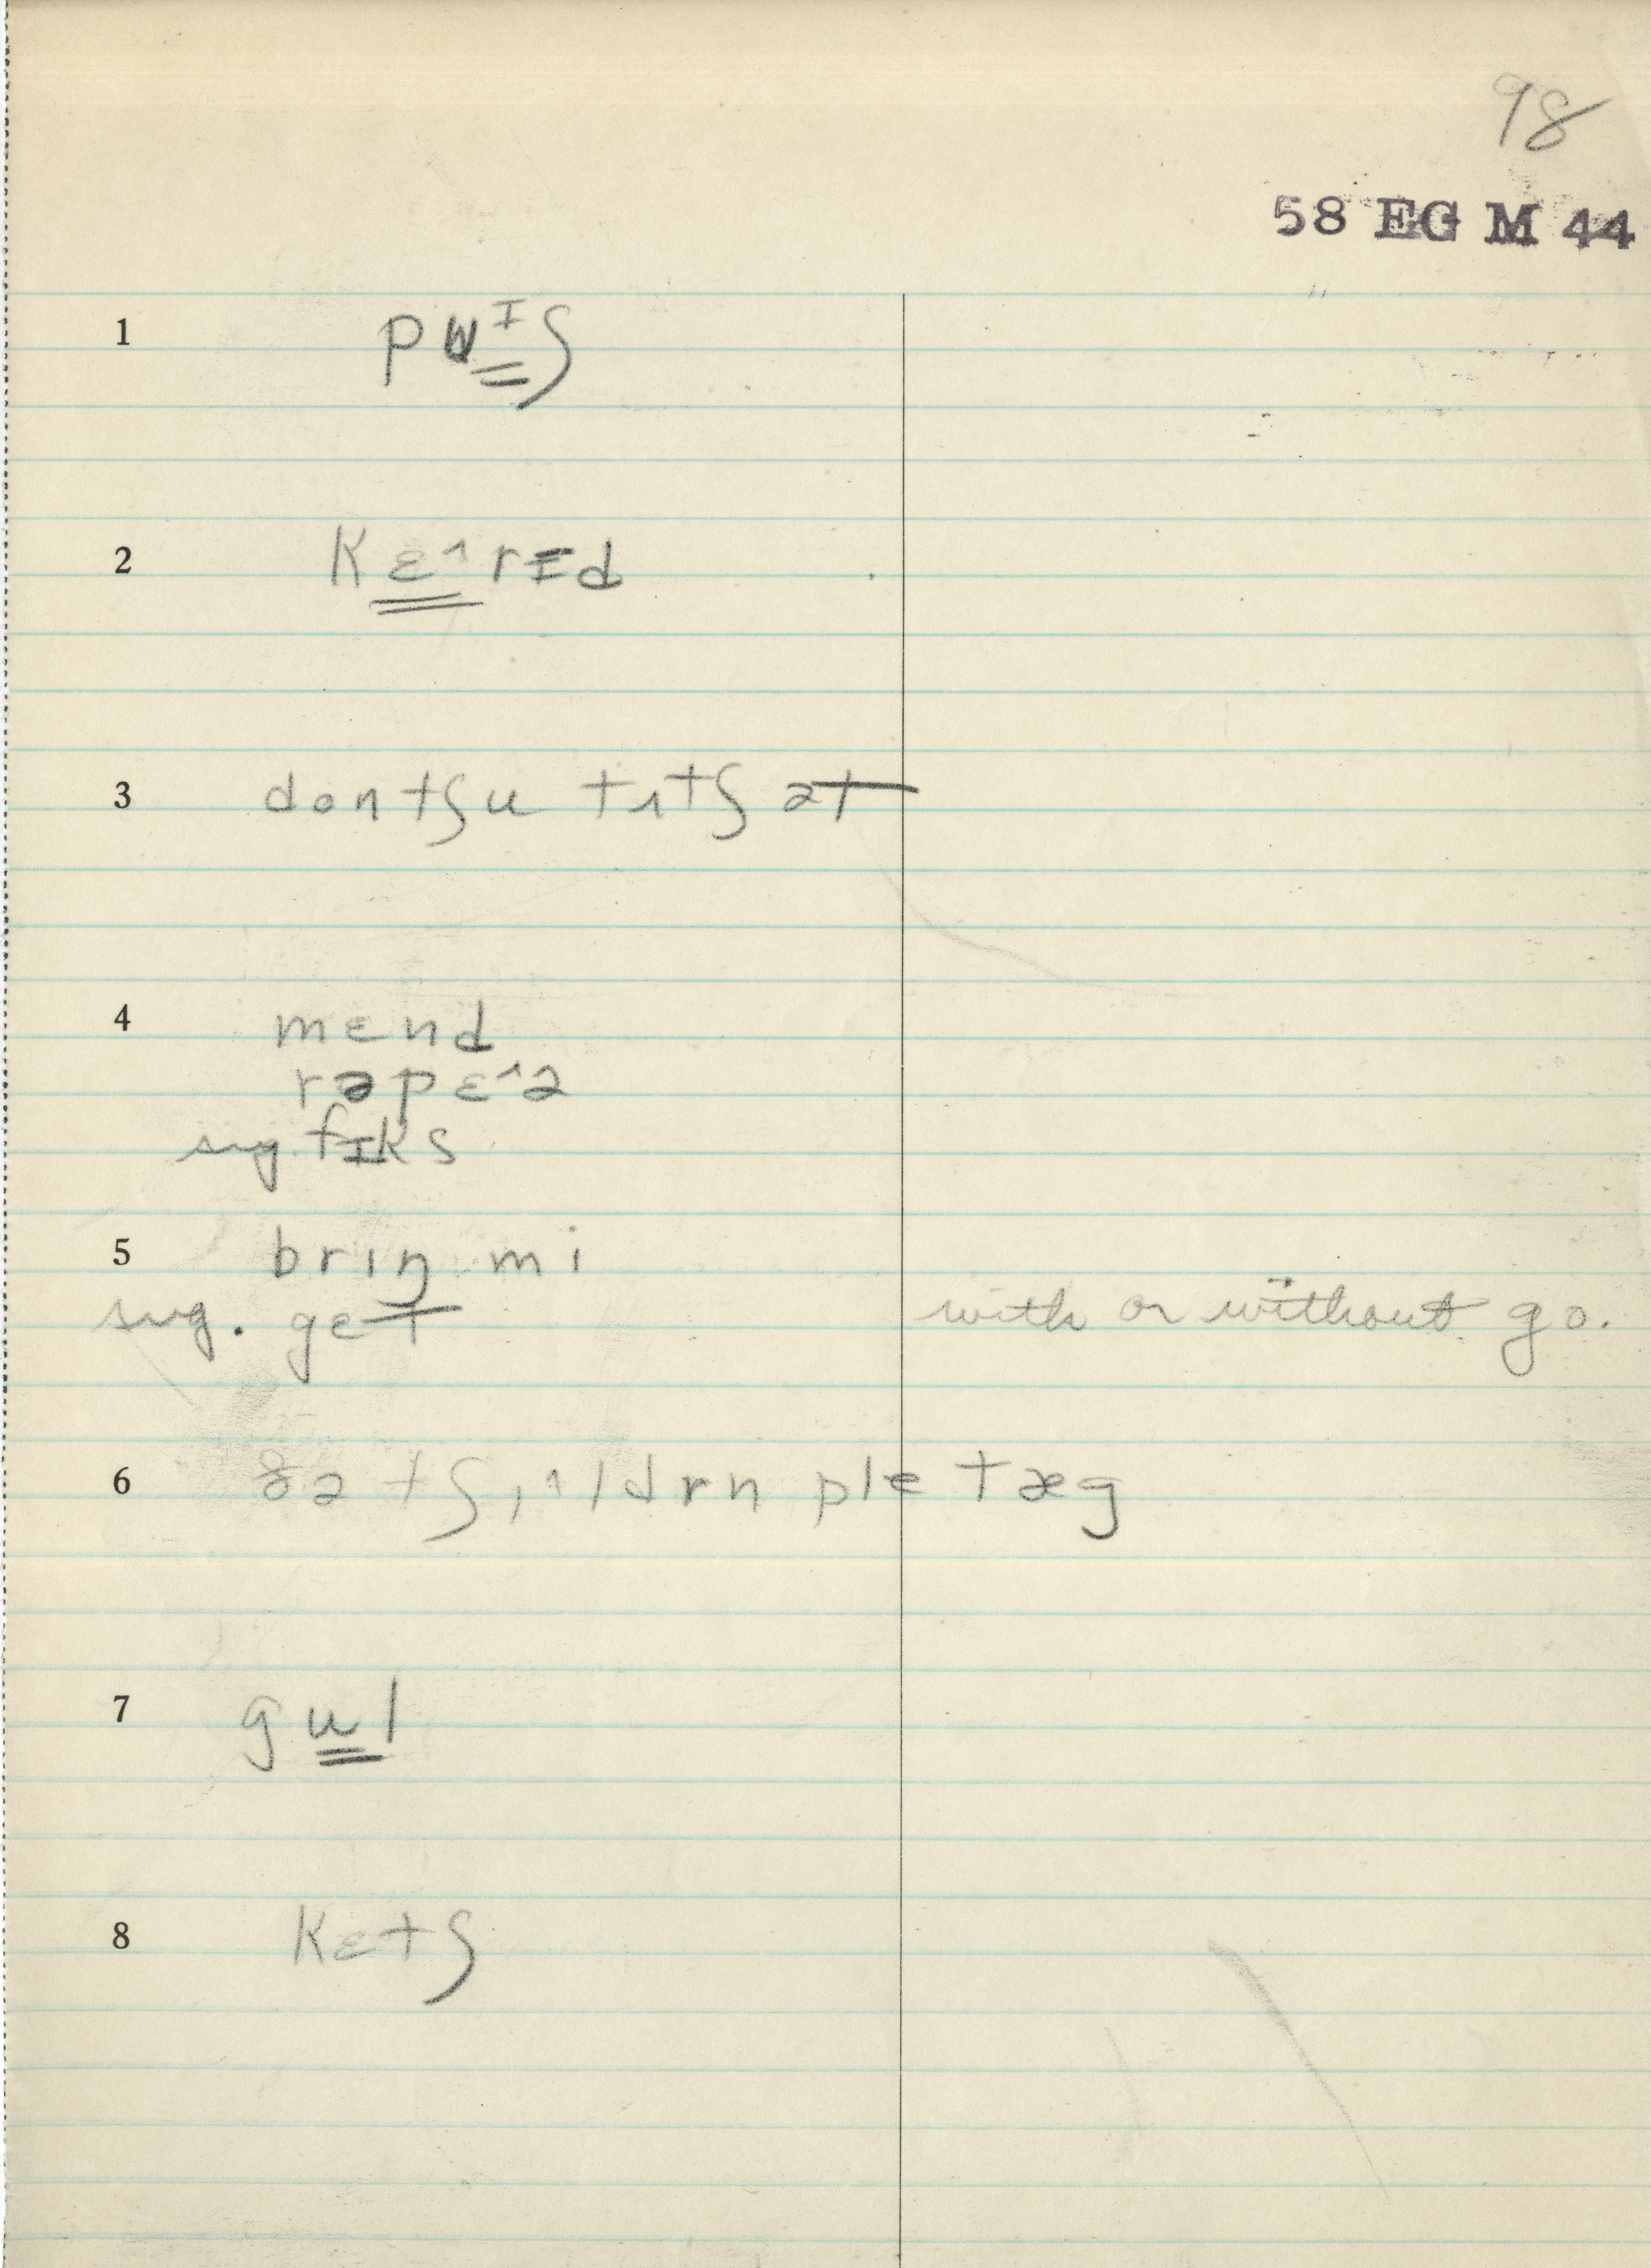 98
58 EG M 44
1 puᴵʃ
2 kɛ^rɪd
3 dontʃu tʌtʃ ət
4 mɛnd
rəpɛ^ə
sug. fɪks
5 brɪŋ mi
sug. gɛt with or without go.
6 ðə tʃɪ^ldrn ple tæg
7 gul
8 kɛtʃ